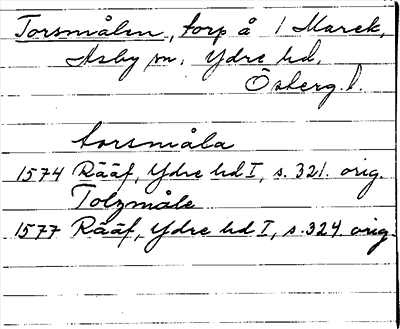 Torsmålen, torp å 1 Marek,
Asby sn, Ydre hd,
Österg. l.
torsmåla
1574 Rääf, Ydre hd I, s. 321. orig.
Tolzmåle
1577 Rääf, Ydre hd I, s. 324. orig.